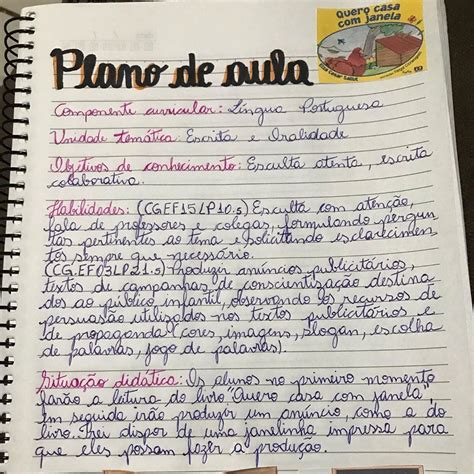 Quero casa
com janela
Plano de aula
Componente curricular: Língua Portuguesa
Unidade temática: Escrita e Oralidade
Objetivos de conhecimento: Esculta atenta, escrita
colaborativa.
Habilidades: (CGEF15LP10.s) Esculta com atenção,
fala de professores e colegas, formulando pergun
tas pertinentes ao tema e solicitando esclarecimen
tos sempre que necessário.
(CG.EF03LP21.s) Produzir anúncios publicitários,
textos de campanhas de conscientização destina
dos ao público infantil, observando os recursos de
persuasão utilizados nos textos publicitários e
de propaganda (cores, imagens, slogan, escolha
de palavras, jogo de palavras).
Situação didática: Os alunos no primeiro momento
farão a leitura do livro "Quero casa com janela",
em seguida irão produzir um anúncio, como a do
livro. Irei dispor de uma janelinha impressa para
que eles possam fazer a produção.